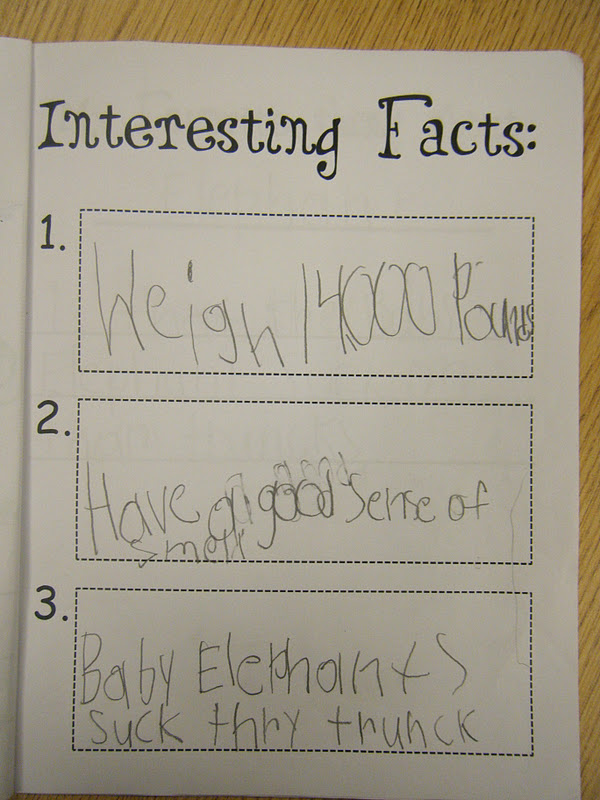 Interesting Facts:
1.
Weigh 14,000 Pounds
2.
Have a good sense of
smell
3.
Baby Elephants
suck thry trunck